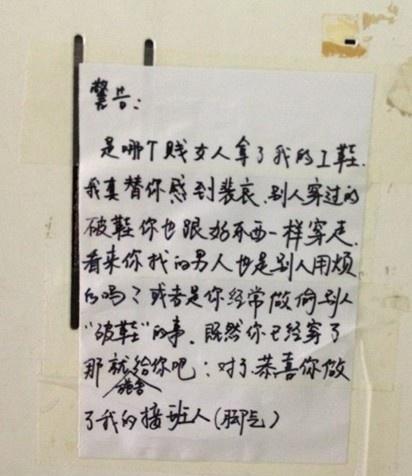 警告：
是哪个贱女人拿了我的工鞋.
我真替你感到裴哀.别人穿过的
破鞋你也跟好东西一样穿走.
看来你找的男人也是别人用烦
的吗？或者是你经常做偷别人
“破鞋”的事.既然你已经穿了
那就施舍给你吧：对了恭喜你做
了我的接班人(脚气)